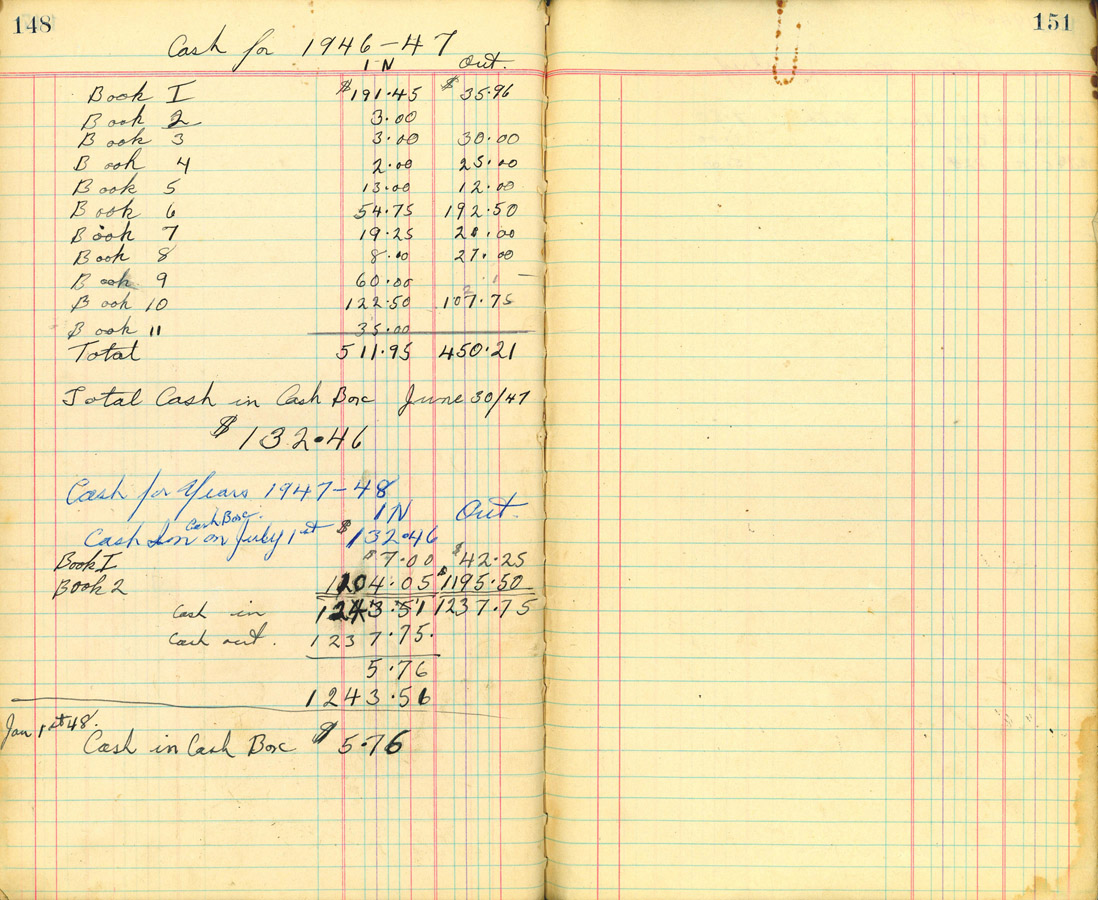 148
Cash for 1946-47
IN Out.
Book I $191.45 $35.96
Book 2 3.00
Book 3 3.00 30.00
Book 4 2.00 25.00
Book 5 13.00 12.00
Book 6 54.75 192.50
Book 7 19.25 20.00
Book 8 8.00 27.00
Book 9 60.00 -
Book 10 122.50 107.75
Book 11 35.00
Total 511.95 450.21
Total Cash in Cash Box June 30/47
$132.46
Cash for Years 1947-48
IN Out.
Cash Box.
Cash on July 1st $132.46
Book I $7.00 $42.25
Book 2 1204.05 1195.50
Cash in 1243.51 1237.75
Cash out. 1237.75.
5.76
1243.51
Jan 1st 48.
Cash in Cash Box $5.76
151